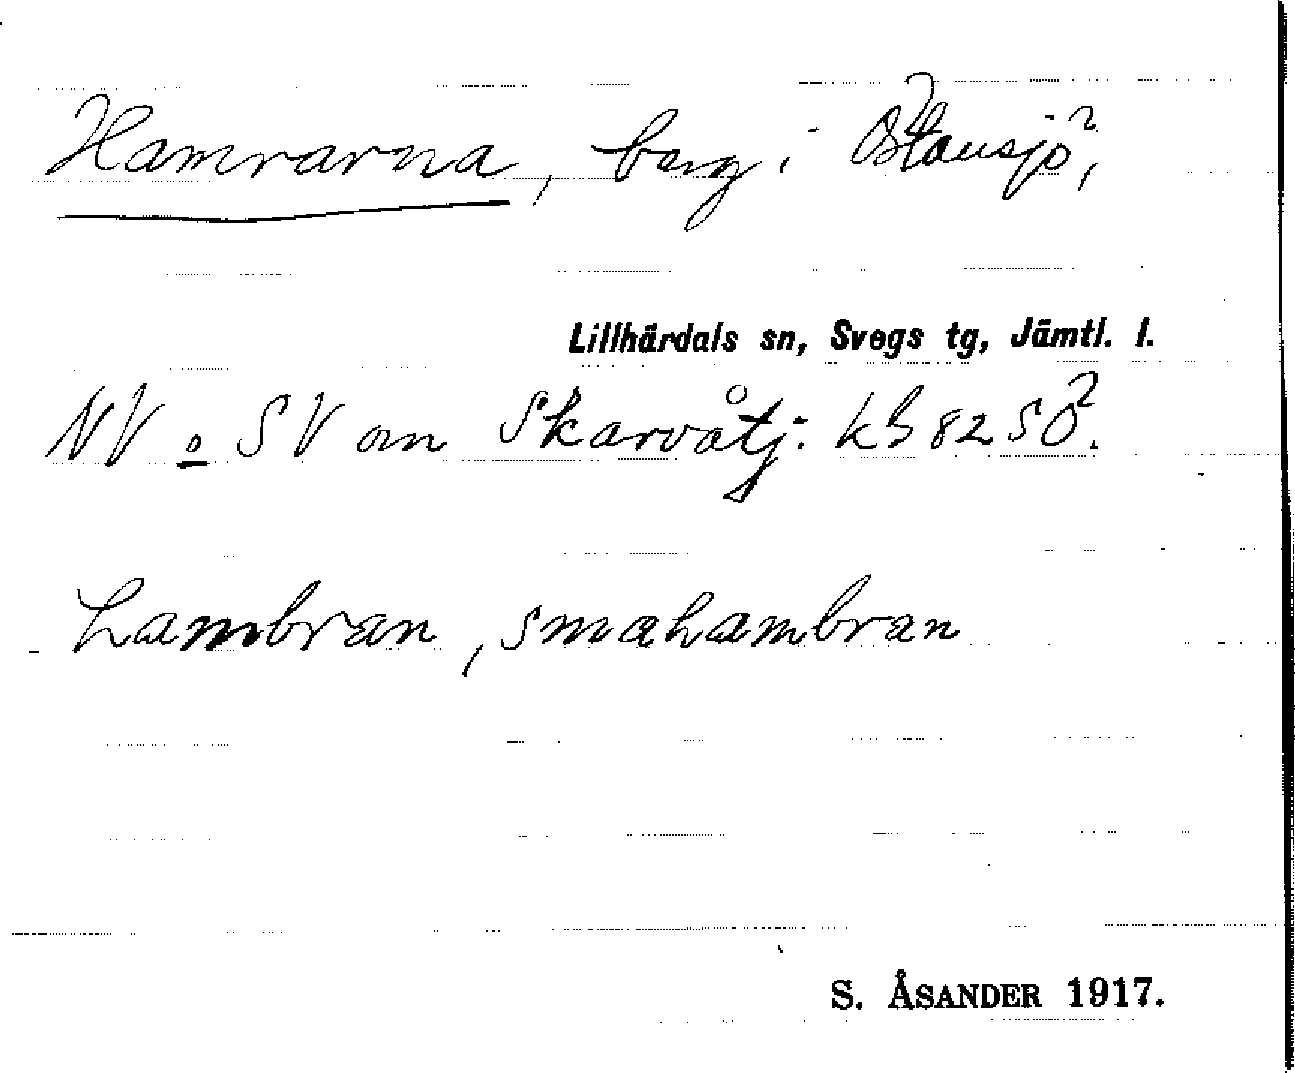 Hamrarna, berg i Östansjö,
Lillhärdals sn, Svegs tg, Jämtl. l.
NV o SV om Skarvåtj: kb 82 SÖ.
hambran, smahambran
S. ÅSANDER 1917.